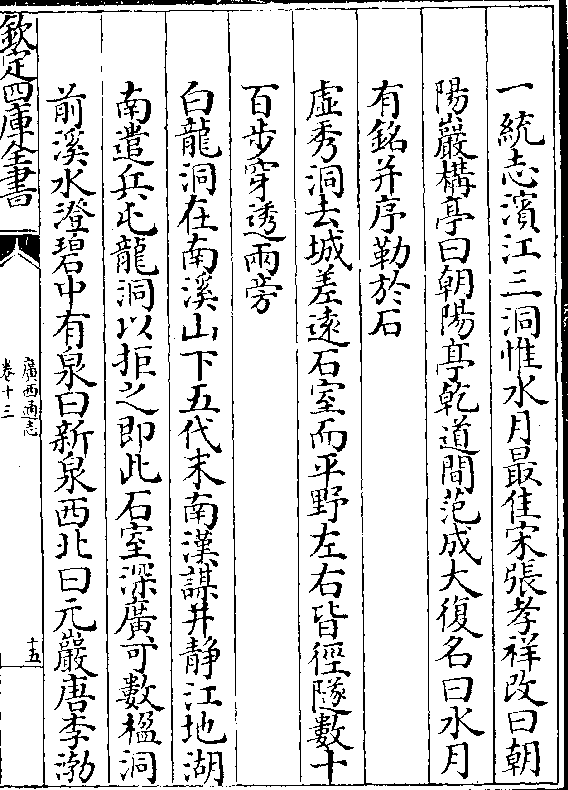 一統志濱江三洞惟水月最佳宋張孝祥改曰朝
陽巖構亭曰朝陽亭乾道間范成大復名曰水月
有銘并序勒於石
虛秀洞去城差遠石室而平野左右皆徑隧數十
百步穿透兩旁
白龍洞在南溪山下五代末南漢謀并静江地湖
南遣兵屯龍洞以拒之即此石室深廣可數楹洞
前溪水澄碧中有泉曰新泉西北曰元巖唐李渤
欽定四庫全書
廣西通志
卷十三
十五